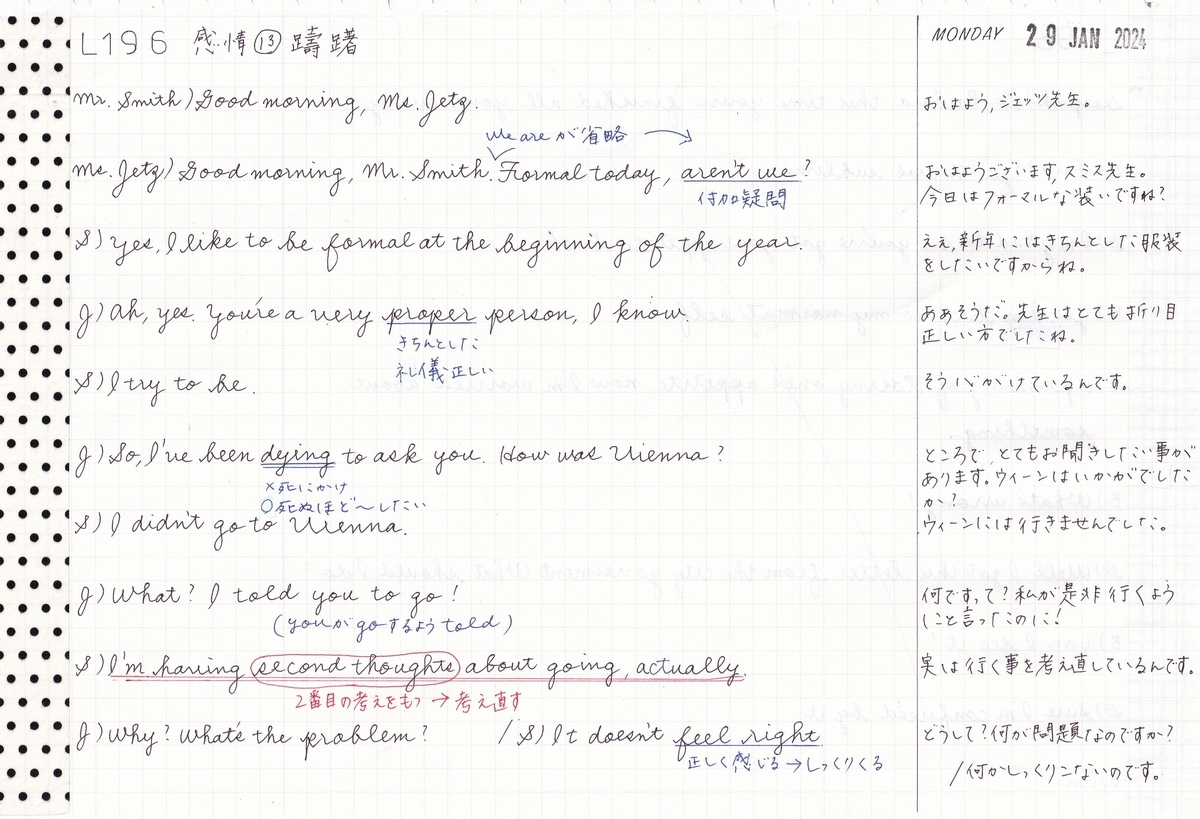 L196 感情⑬躊躇
MONDAY 29 JAN 2024
Mr. Smith) Good morning, Ms. Jetz.
おはよう,ジェッツ先生。
We are が省略 →
Ms. Jetz) Good morning, Mr. Smith. Formal today, aren't we?
付加疑問
おはようございます,スミス先生。
今日はフォーマルな装いですね?
S) Yes, I like to be formal at the beginning of the year.
ええ,新年にはきちんとした服装
をしたいですからね。
J) Ah, yes. You're a very proper person, I know.
きちんとした
礼儀正しい
ああそうだ。先生はとても折り目
正しい方でしたね。
S) I try to be.
そう心がけているんです。
J) So, I've been dying to ask you. How was Vienna?
×死にかけ
○死ぬほど〜したい
ところで,とてもお聞きしたい事が
あります。ウィーンはいかがでした
か?
S) I didn't go to Vienna.
ウィーンには行きませんでした。
J) What? I told you to go!
(youがgoするようtold)
何ですって?私が是非行くよう
にと言ったのに!
S) I'm having second thoughts about going, actually.
2番目の考えをもつ → 考え直す
実は行く事を考え直しているんです。
J) Why? What's the problem? / S) It doesn't feel right.
正しく感じる→しっくりくる
どうして?何が問題なのですか?
/何かしっくりこないのです。